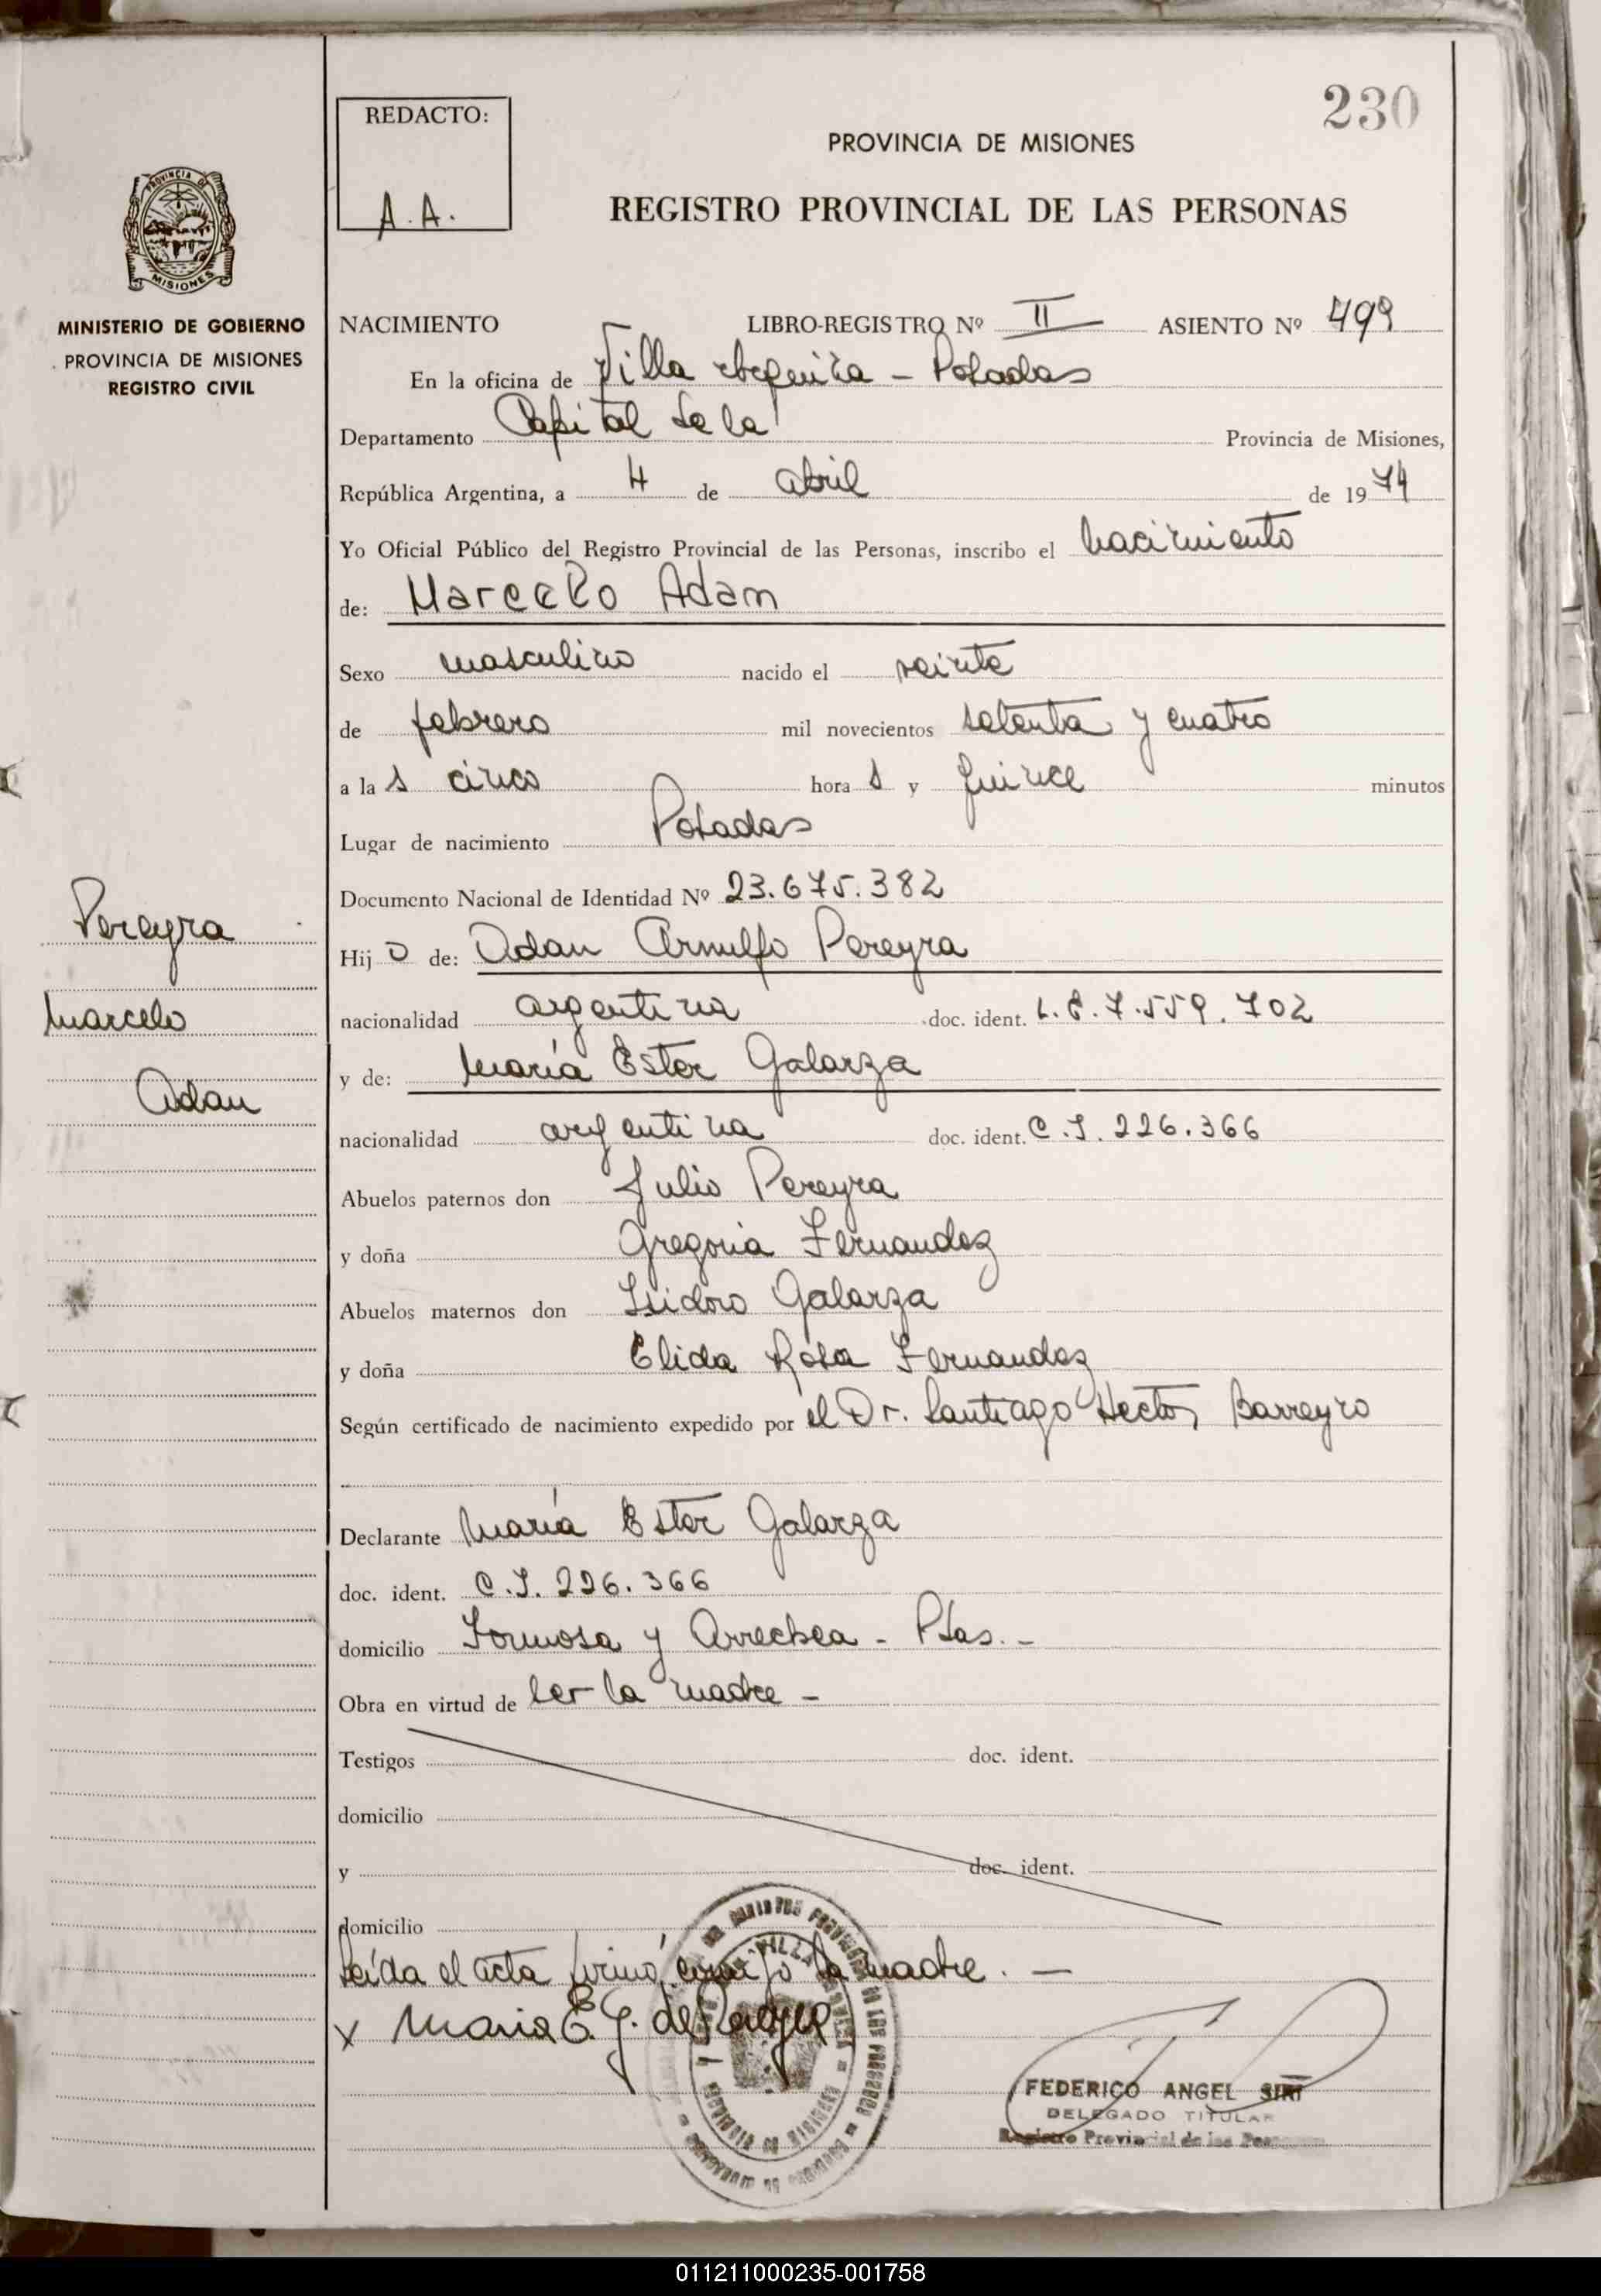 230
REDACTO:
A.A.
PROVINCIA DE MISIONES
REGISTRO PROVINCIAL DE LAS PERSONAS
PROVINCIA DE
MISIONES
MINISTERIO DE GOBIERNO
PROVINCIA DE MISIONES
REGISTRO CIVIL
NACIMIENTO LIBRO-REGISTRO Nº II ASIENTO Nº 499
En la oficina de Villa Urquiza - Posadas
Departamento Capital de la Provincia de Misiones,
República Argentina, a 4 de abril de 1974
Yo Oficial Público del Registro Provincial de las Personas, inscribo el nacimiento
de: Marcelo Adam
Sexo masculino nacido el veinte
de febrero mil novecientos setenta y cuatro
a las cinco horas y quince minutos
Lugar de nacimiento Posadas
Documento Nacional de Identidad Nº 23.675.382
Pereyra
Hijo de: Adan Arnulfo Pereyra
Marcelo
nacionalidad argentina doc. ident. L.E.7.559.702
y de: María Ester Galarza
Adan
nacionalidad argentina doc. ident. C.I. 226.366
Abuelos paternos don Julio Pereyra
y doña Gregoria Fernandez
Abuelos maternos don Isidoro Galarza
y doña Elida Rosa Fernandez
Según certificado de nacimiento expedido por el Dr. Santiago Hector Barreyro
Declarante María Ester Galarza
doc. ident. C.I. 226.366
domicilio Formosa y Arrechea - Pdas. -
Obra en virtud de ser la madre -
Testigos doc. ident.
domicilio
y doc. ident.
domicilio
Leída el acta firmó conmigo la madre. —
x Maria E. G. de Pereyra
FEDERICO ANGEL SIRI
DELEGADO TITULAR
Registro Provincial de las Personas
011211000235-001758